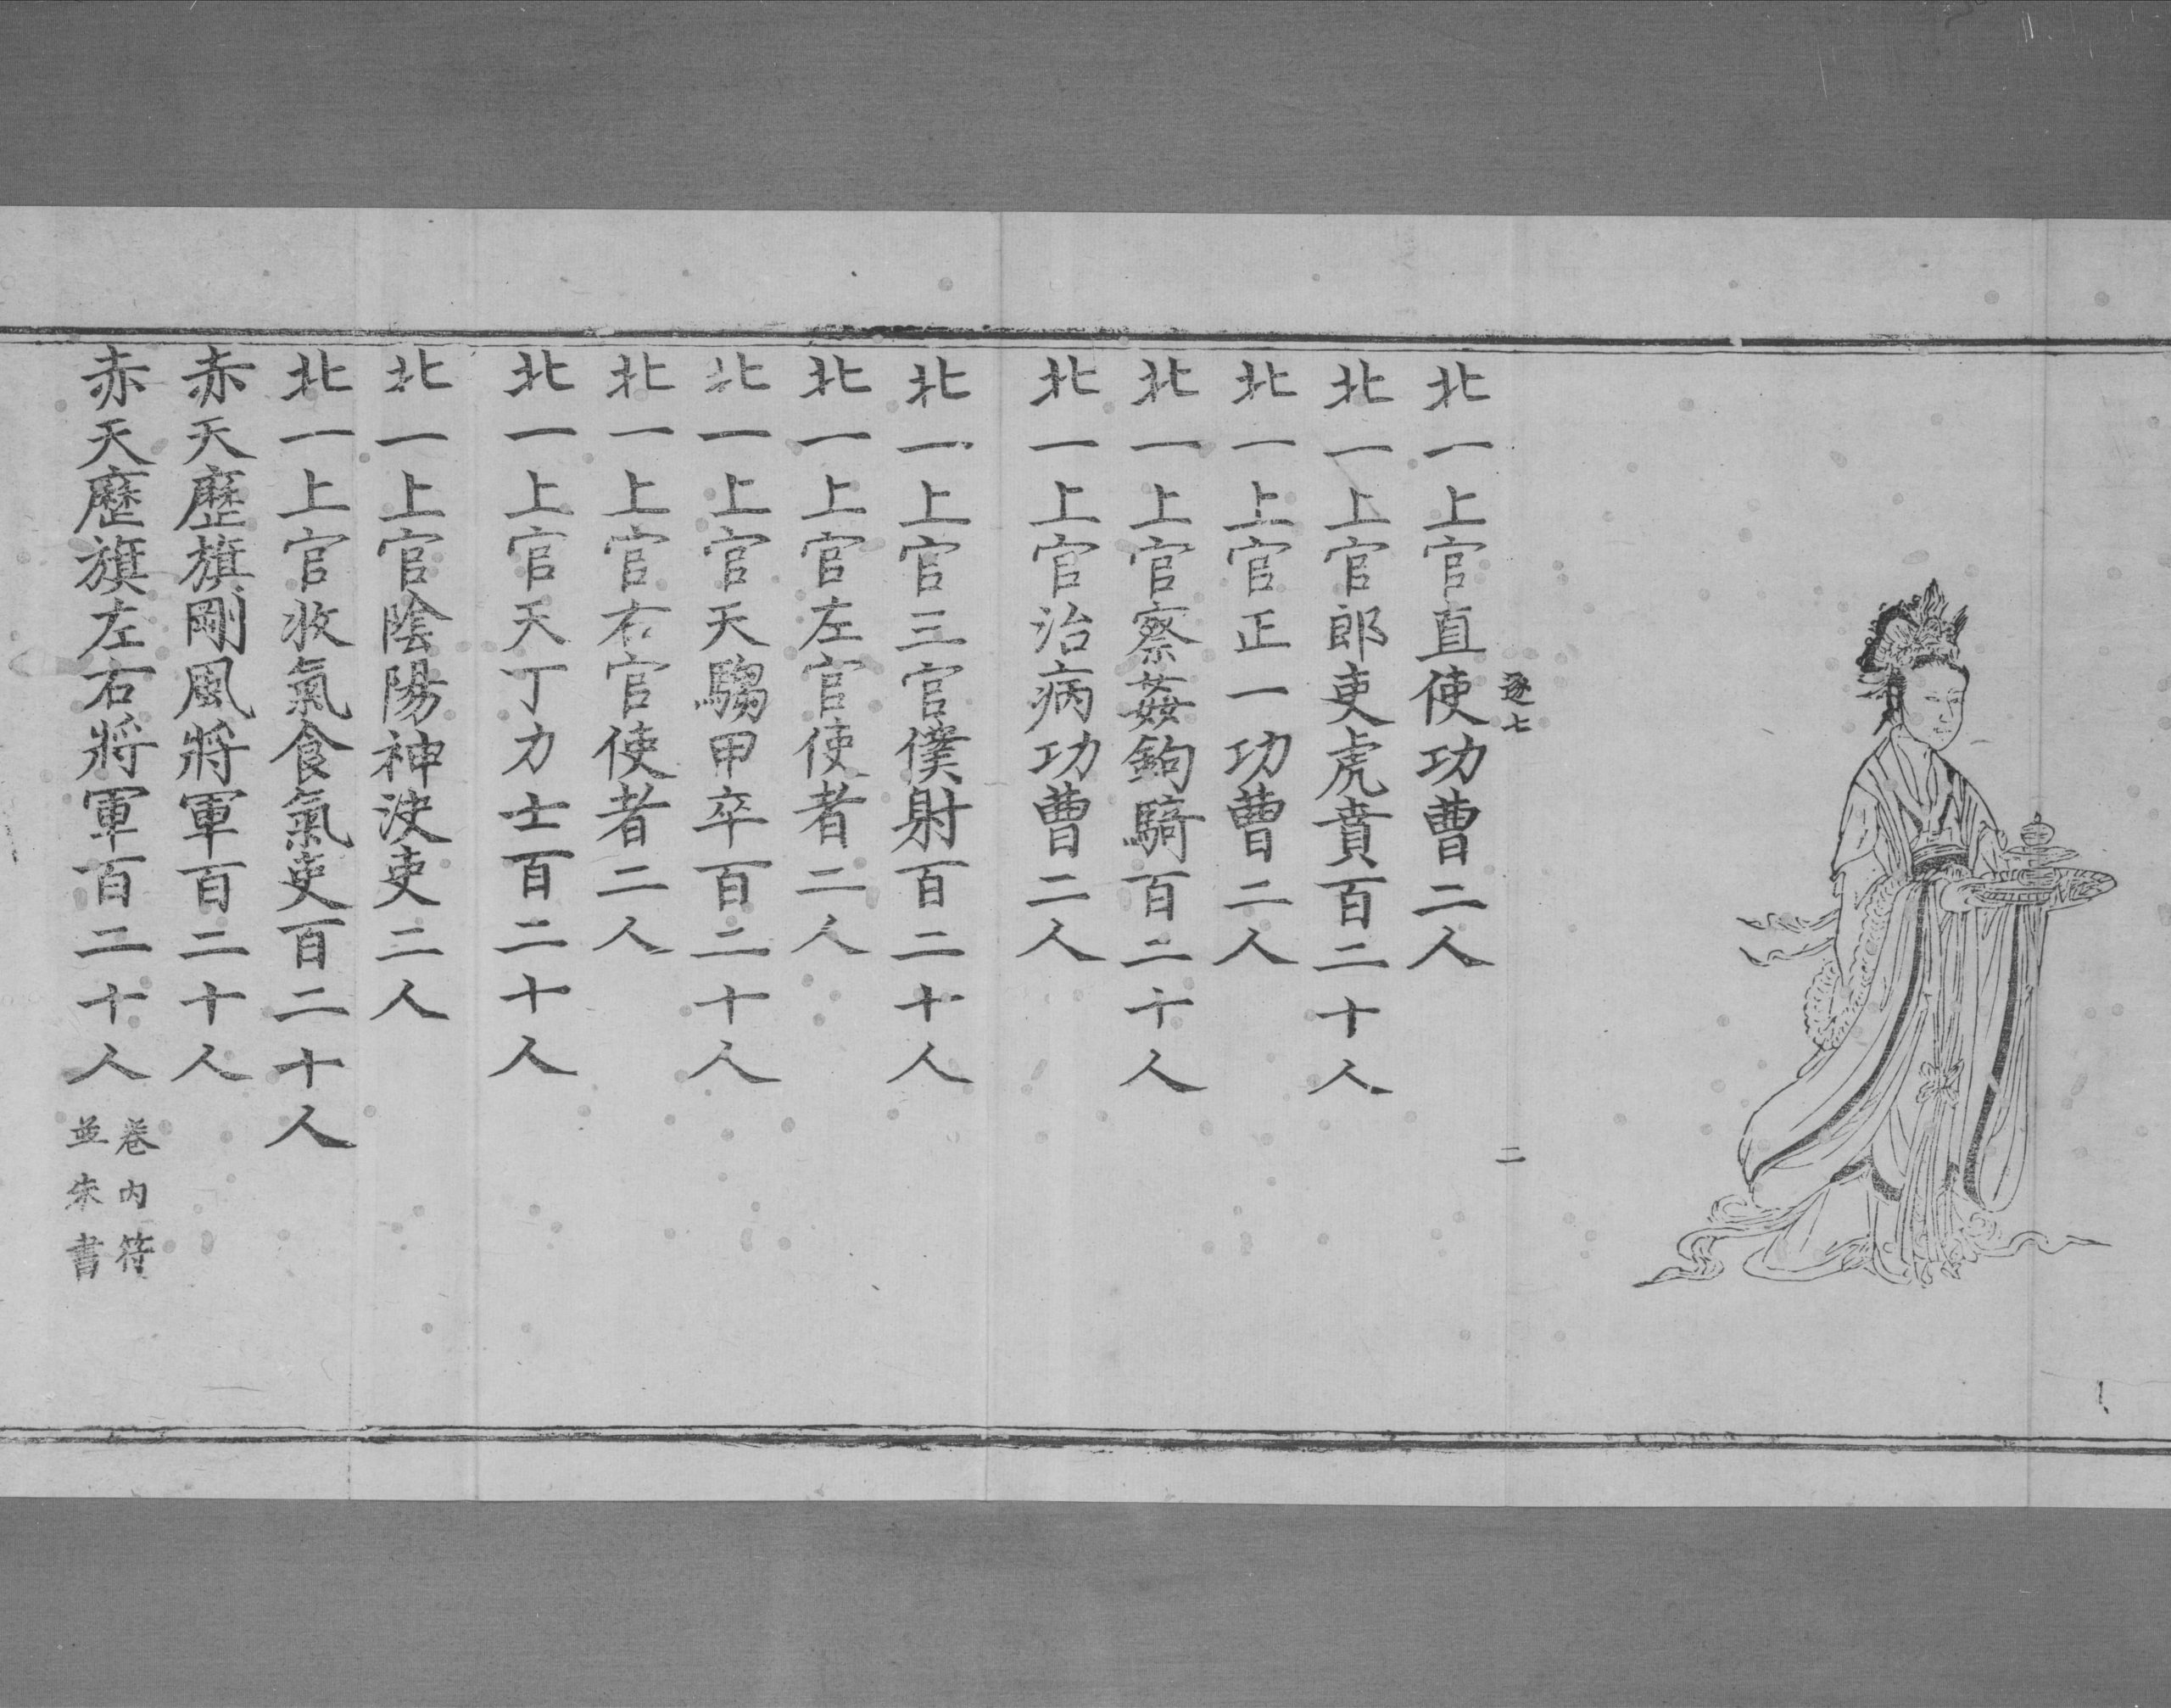 逐七 二
北一上官直使功曹二人
北一上官郎吏虎賁百二十人
北一上官正一功曹二人
北一上官察姦鉤騎百二十人
北一上官治病功曹二人
北一上官三官僕射百二十人
北一上官左官使者二人
北一上官天騶甲卒百二十人
北一上官右官使者二人
北一上官天丁力士百二十人
北一上官陰陽神決吏二人
北一上官收氣食氣吏百二十人
赤天歷旗剛風將軍百二十人
赤天歷旗左右將軍百二十人
卷内符
並朱書